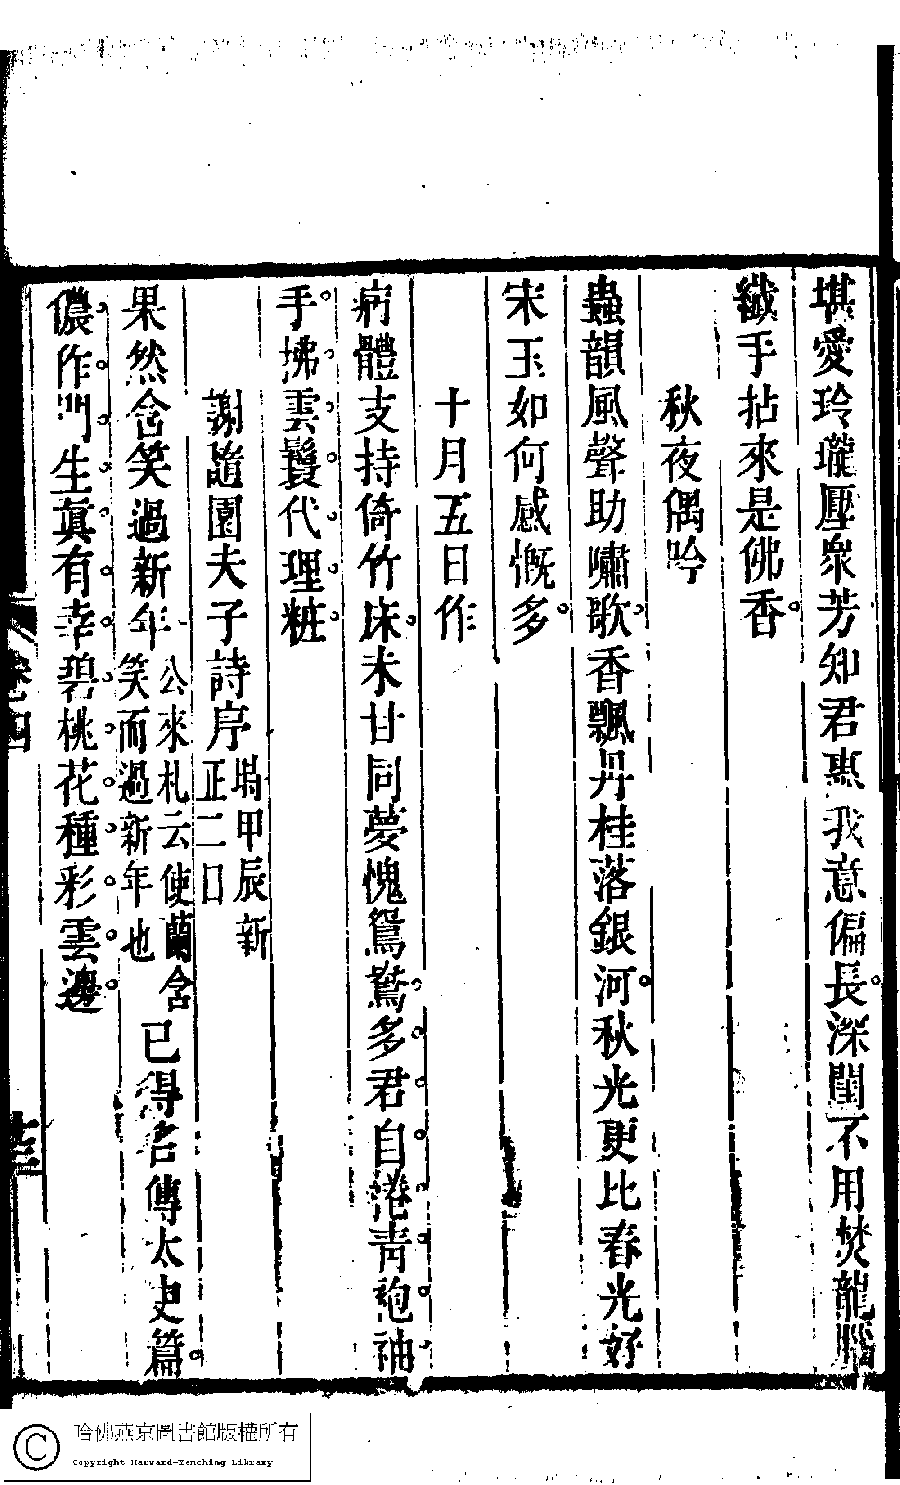 堪愛玲瓏壓衆芳知君惠我意偏長深閨不用焚龍腦
纖手拈來是佛香
秋夜偶吟
蟲韻風聲助嘯歌香飄丹桂落銀河秋光更比春光好
宋玉如何感慨多
十月五日作
病體支持倚竹床未甘同夢愧鴛鴦多君自捲青袍袖
手拂雲鬟代理粧
謝隨園夫子詩序時甲辰新正二日
果然含笑過新年公來札云使蘭含笑而過新年也已得名傳太史篇
儂作門生眞有幸碧桃花種彩雲邊
卷四
哈佛燕京圖書館版權所有
Copyright Harvard-Yenching Library